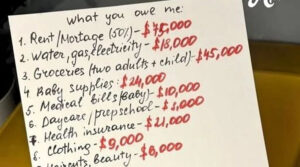 What you owe me:
1. Rent/Mortage (50%) - $75,000
2. Water, gas, electricity - $18,000
3. Groceries (two adults + child) - $45,000
4 Baby supplies: $24,000
5. Medical bills (Baby) - $10,000
6. Daycare/prepschool -
7. Health insurance - $21,000
8. Clothing - $9,000
Haircuts, Beauty - $6,000